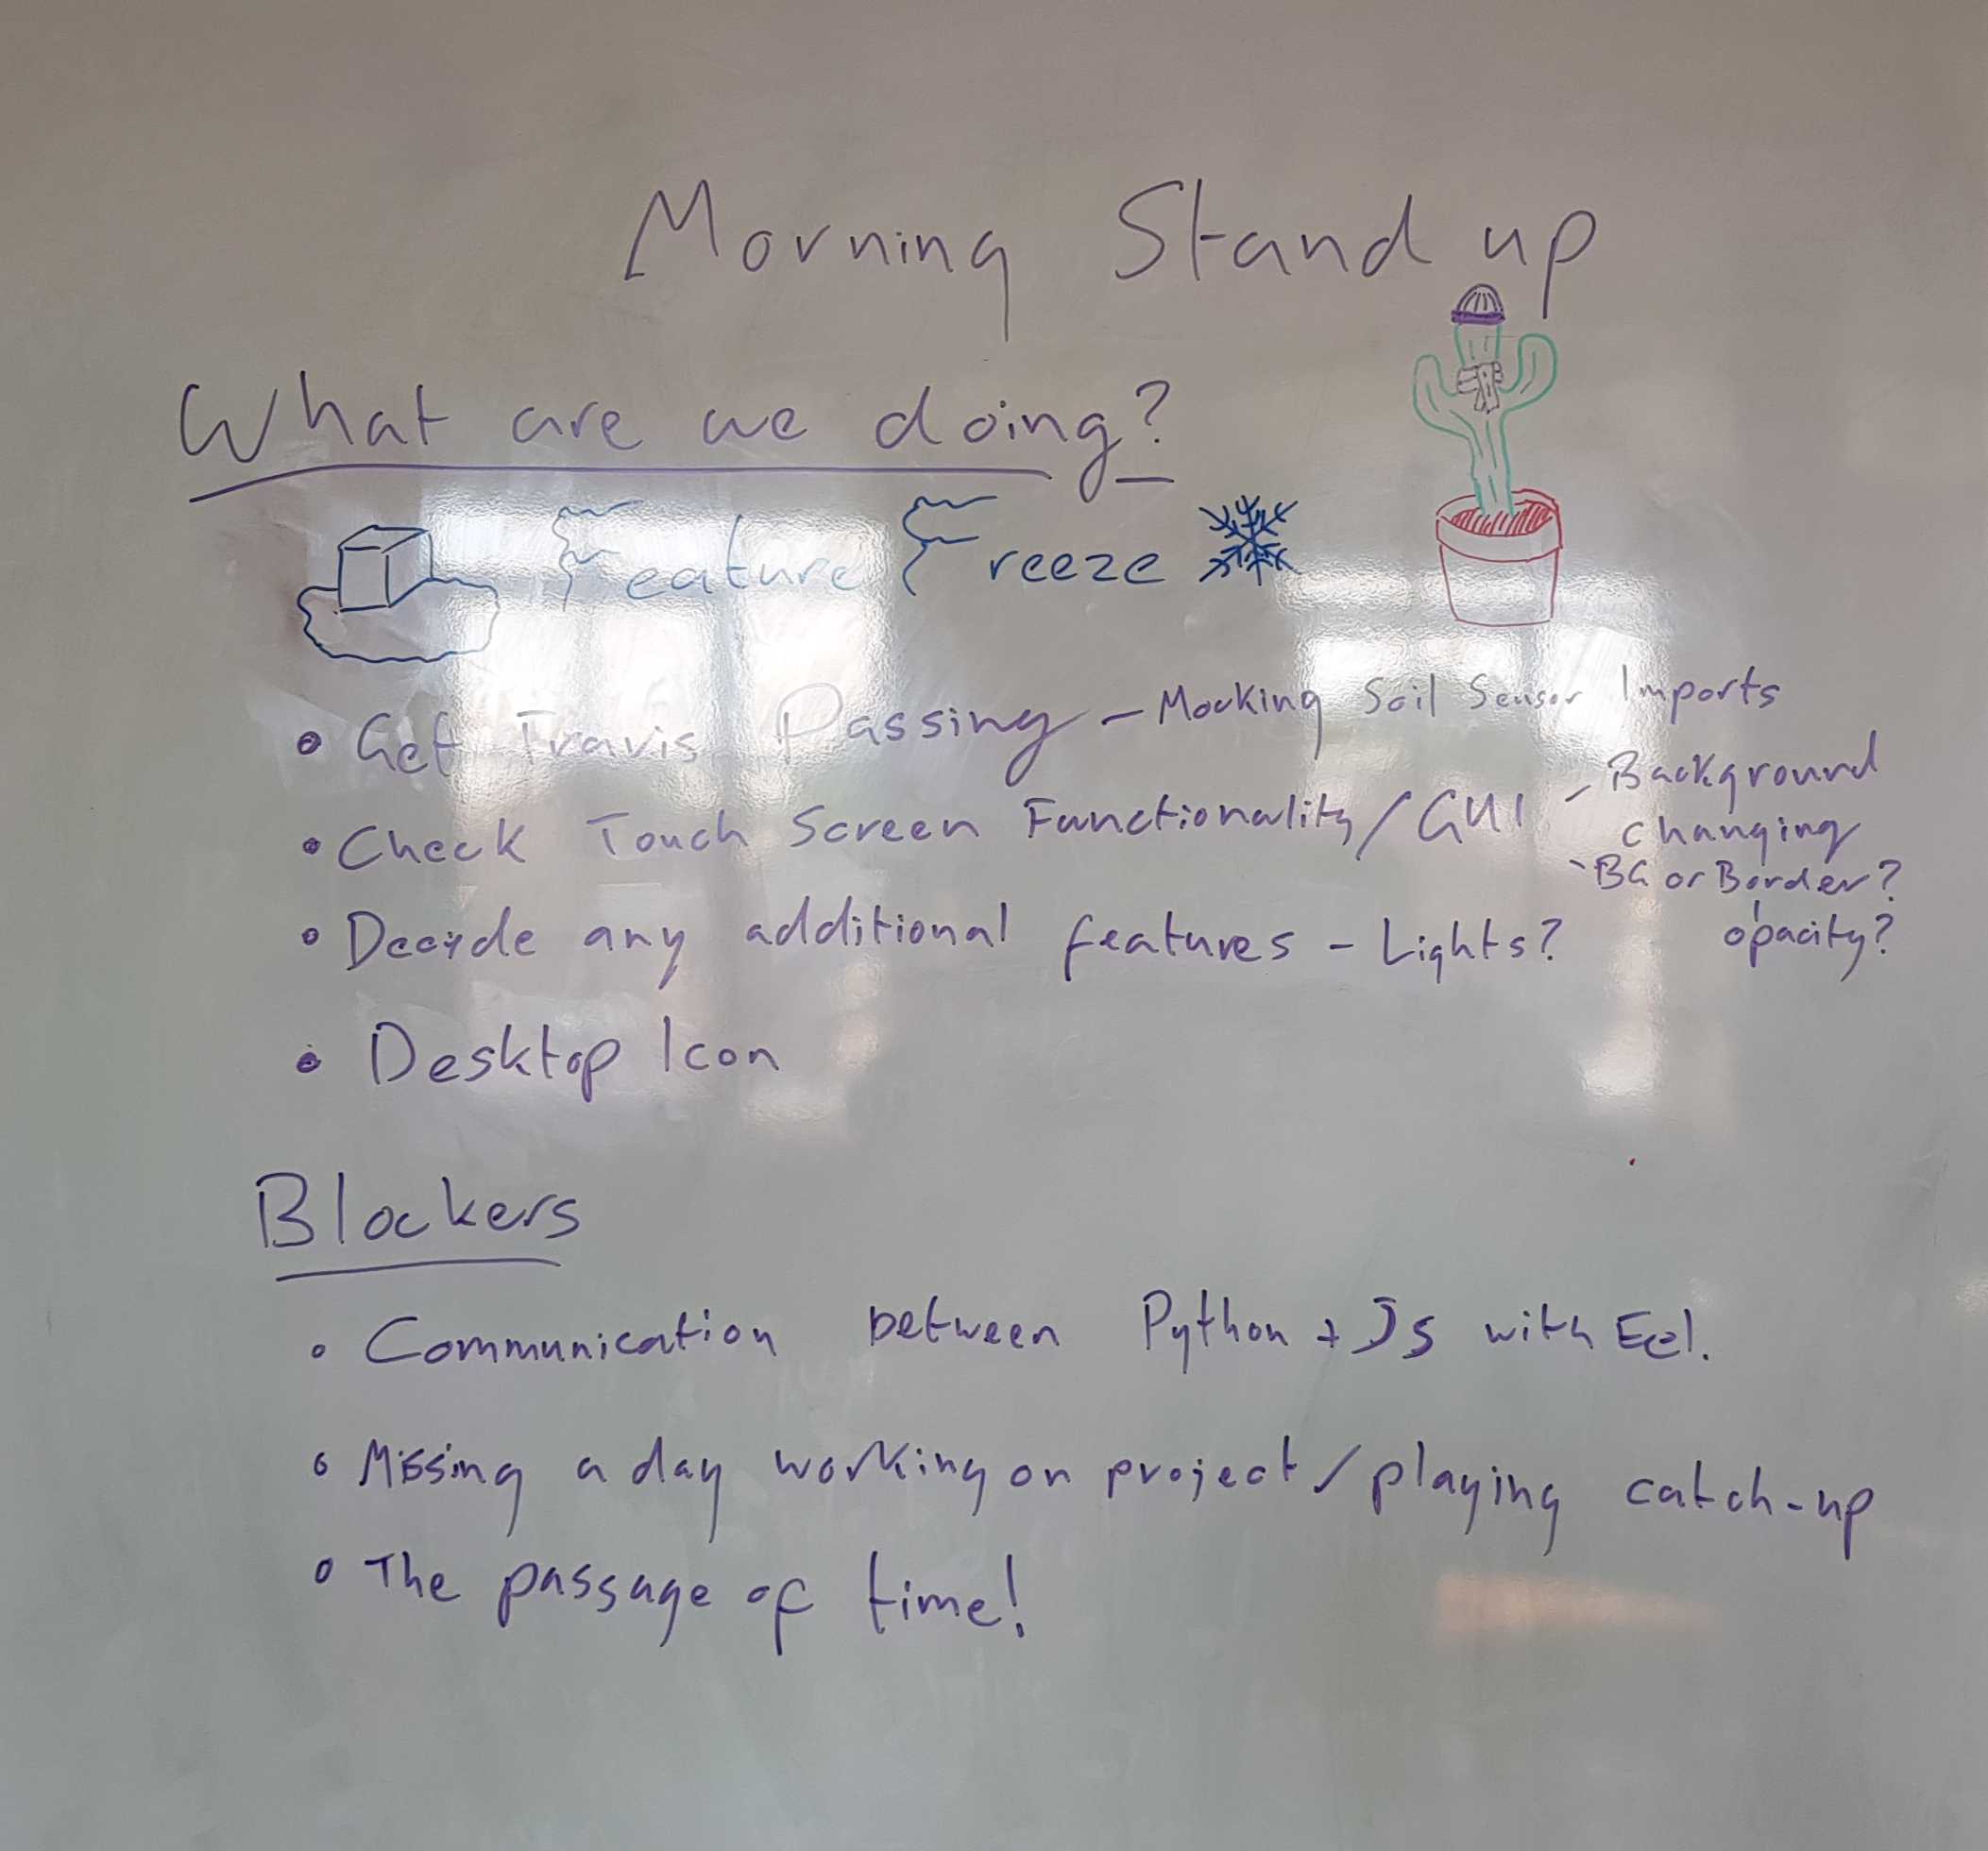 Morning Stand up
What are we doing?
Feature Freeze
• Get Travis Passing - Mocking Soil Sensor Imports
• Check Touch Screen Functionality / GUI - Background
changing
- BG or Border?
opacity?
• Decide any additional features - Lights?
• Desktop Icon
Blockers
• Communication between Python + JS with Eel.
• Missing a day working on project / playing catch-up
• The passage of time!